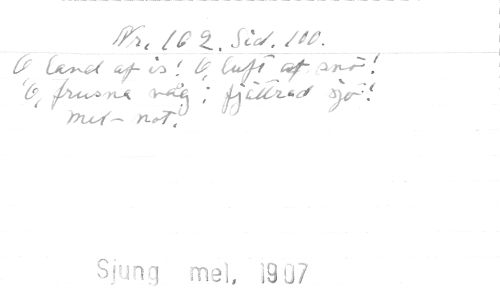 Nr. 162. Sid. 100.
O, land af is! O, luft af snö!
O, frusna våg i fjättrad sjö!
mel- not.
Sjung mel, 1907